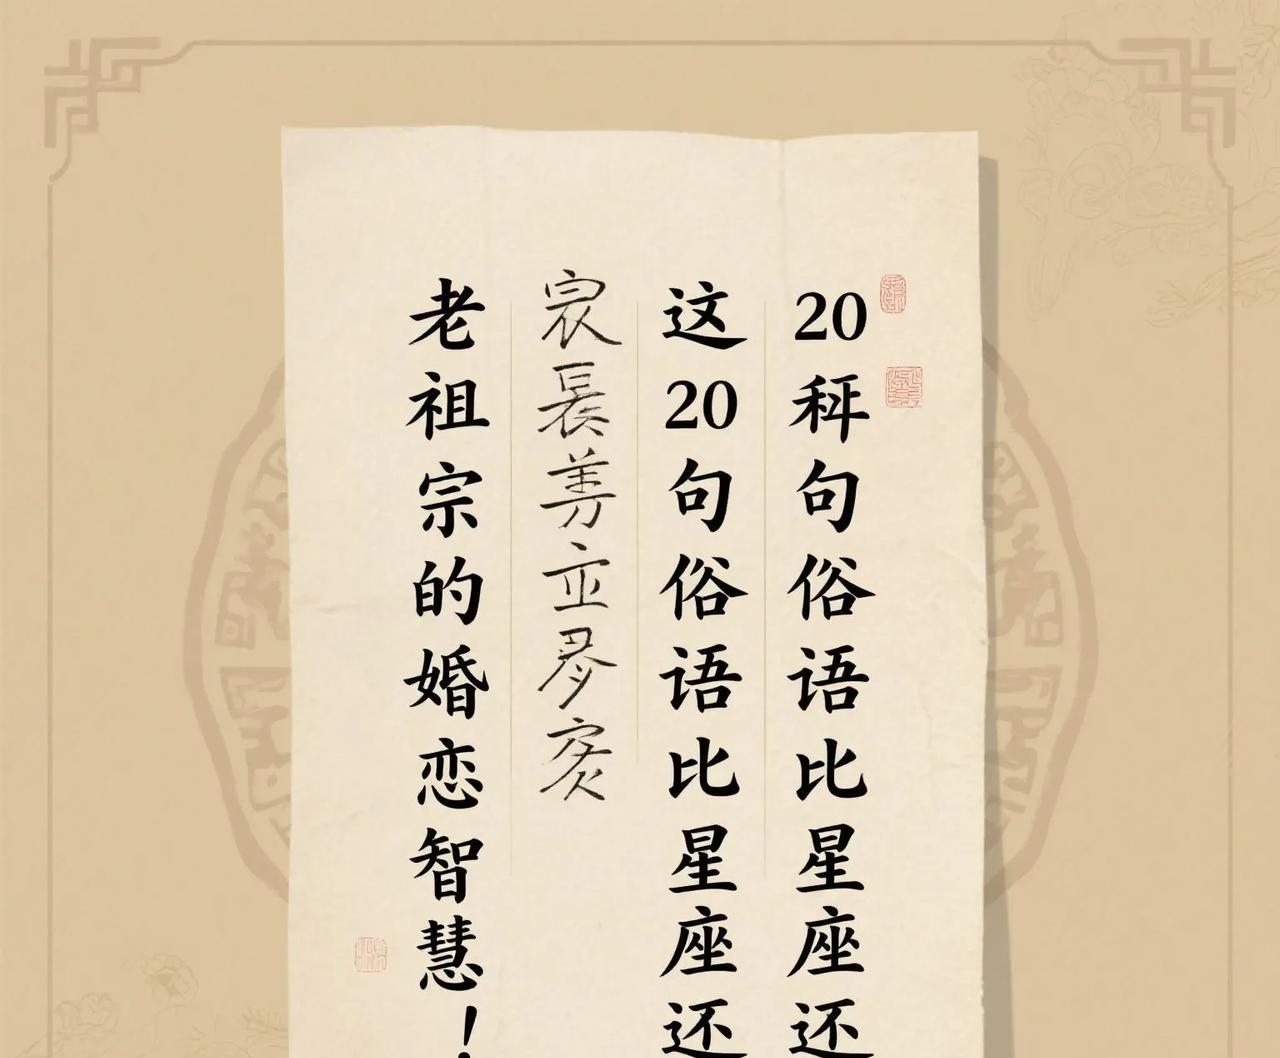 20句俗语比星座还
这20句俗语比星座还
老祖宗的婚恋智慧！